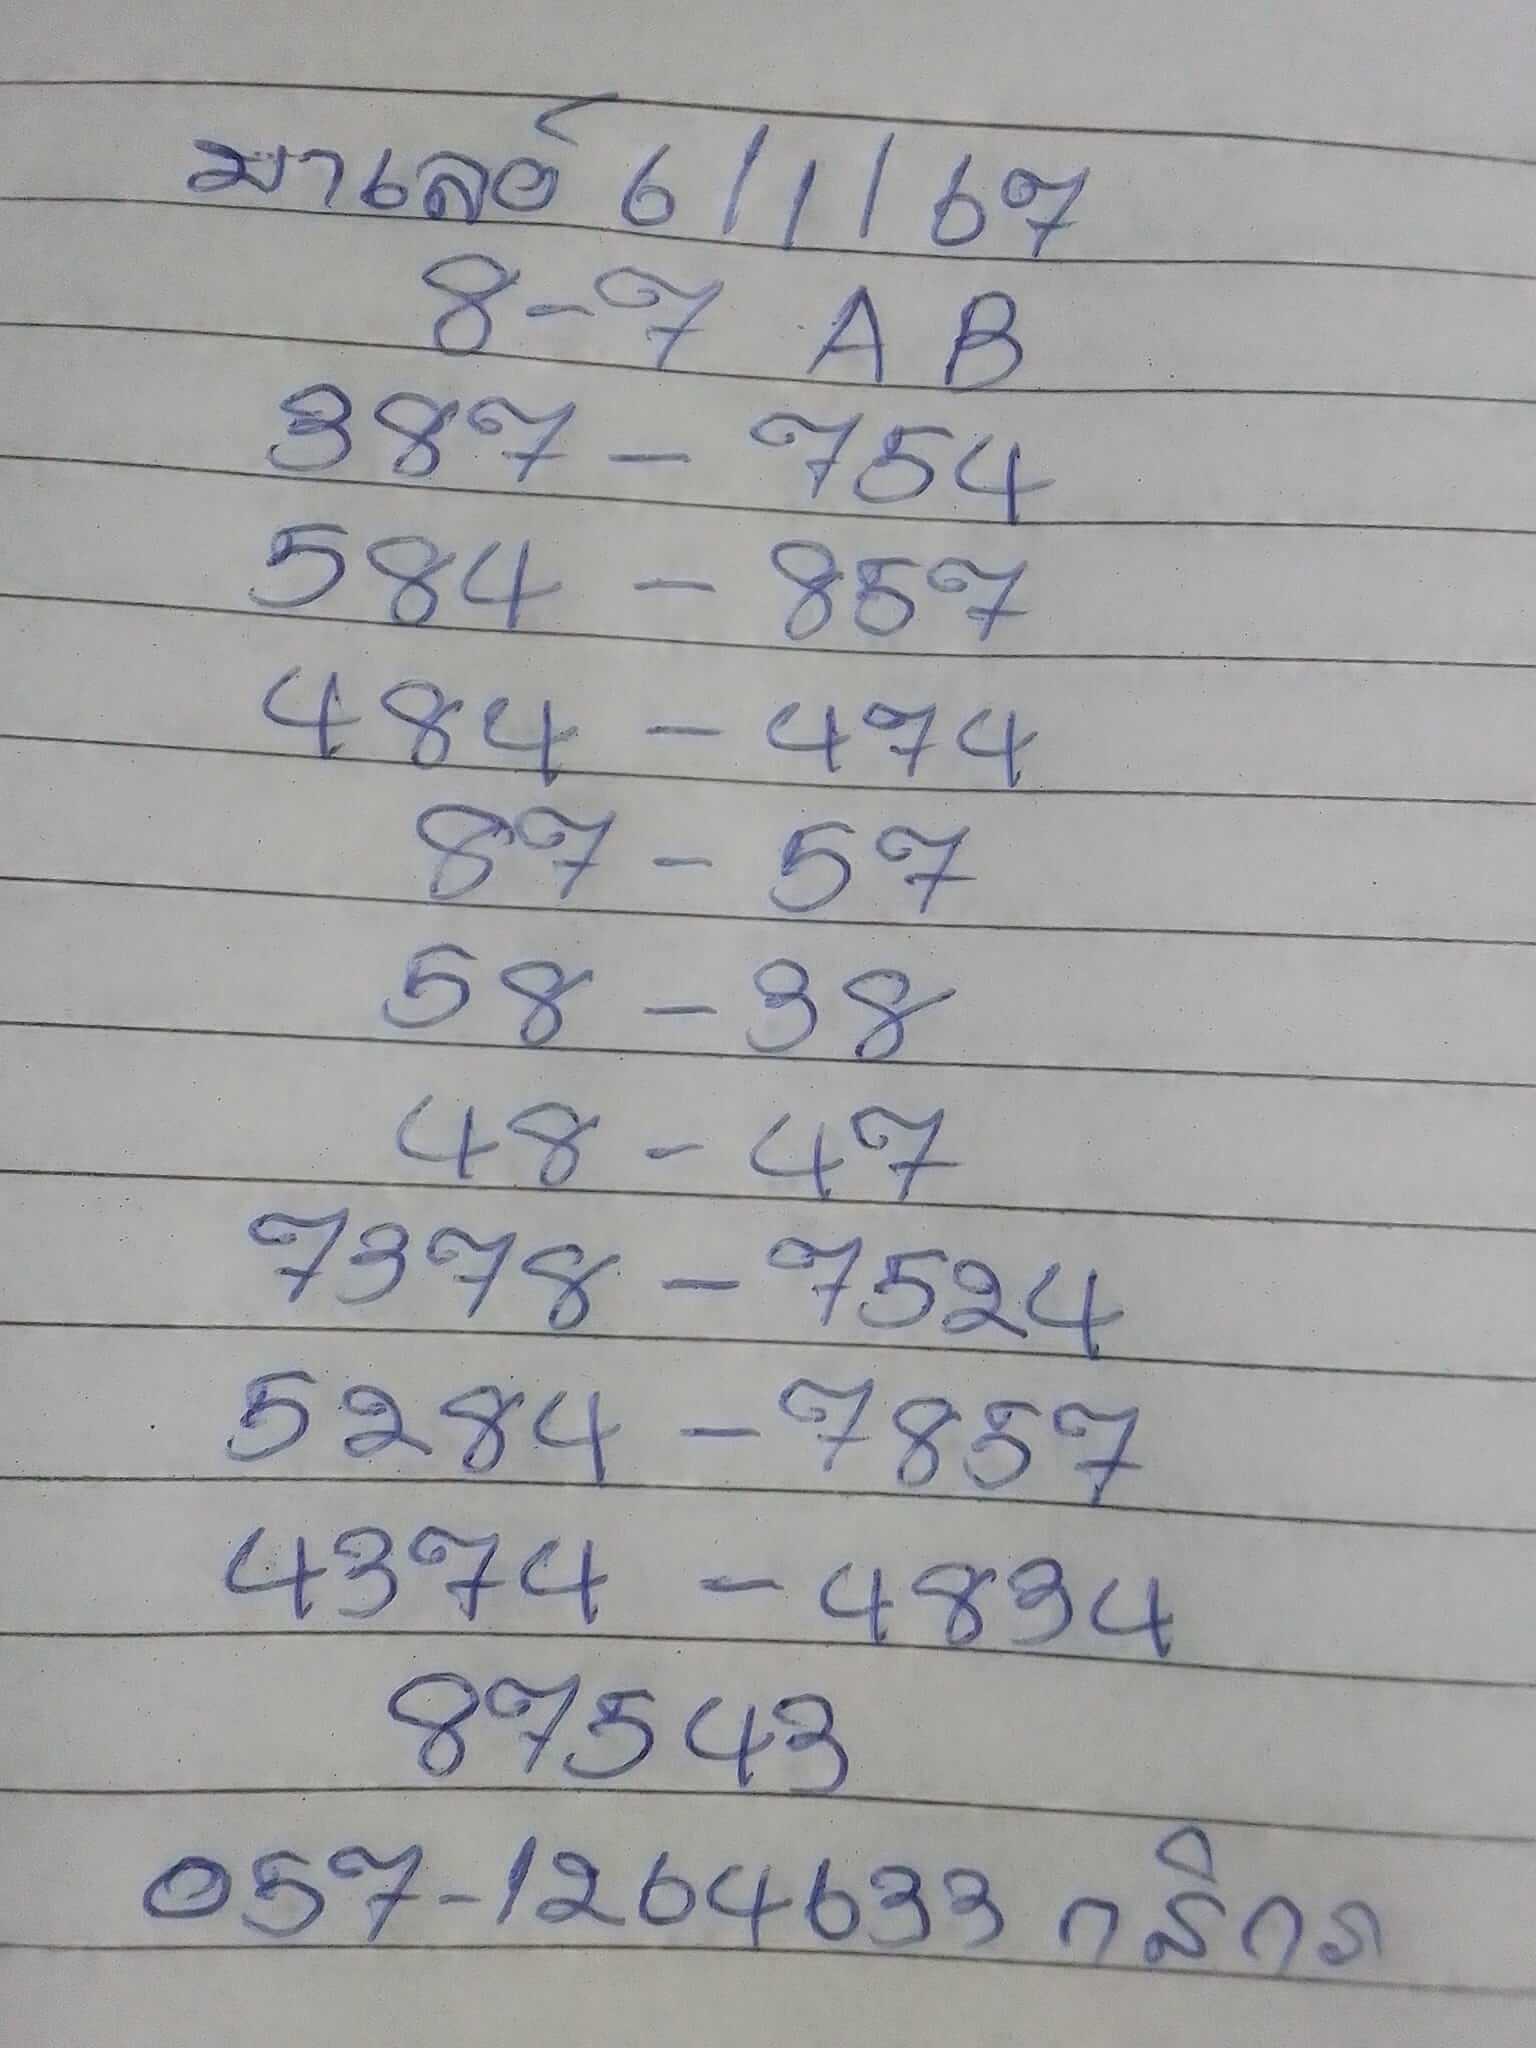 มาเลย์ 6/1/67
8-7 AB
387 - 754
584 - 857
484 - 474
87 - 57
58 - 38
48 - 47
7378 - 7524
5284 - 7857
4374 - 4834
87543
057-1264633 กสิกร